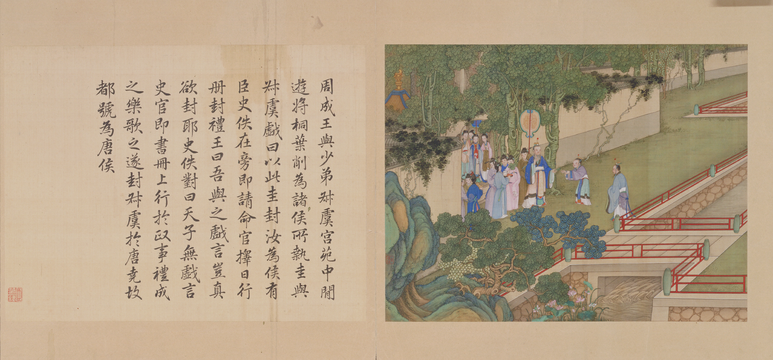 周成王與少弟叔虞宮苑中閒
遊將桐葉削為諸侯所執圭與
叔虞戲曰以此圭封汝為侯有
臣史佚在旁即請命官擇日行
册封禮王曰吾與之戲言豈真
欲封耶史佚對曰天子無戲言
史官即書冊上行於政事禮成
之樂歌之遂封叔虞於唐堯故
都號為唐侯